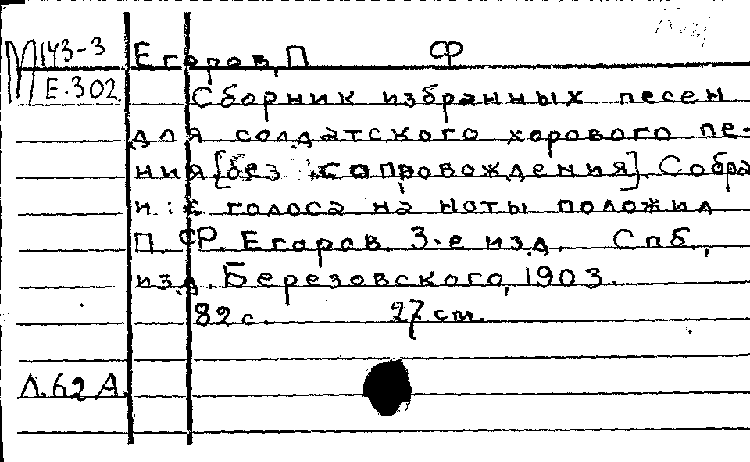 М 143-3 Егоров, П Ф
Е.302
Сборник избранных песен
для солдатского хорового пе-
ния [без сопровождения]. Собра
и с голоса на ноты положил
П. Ф. Егоров. 3-е изд. Спб,
изд. Березовского, 1903.
82 с. 27 см.
Л.62 А.